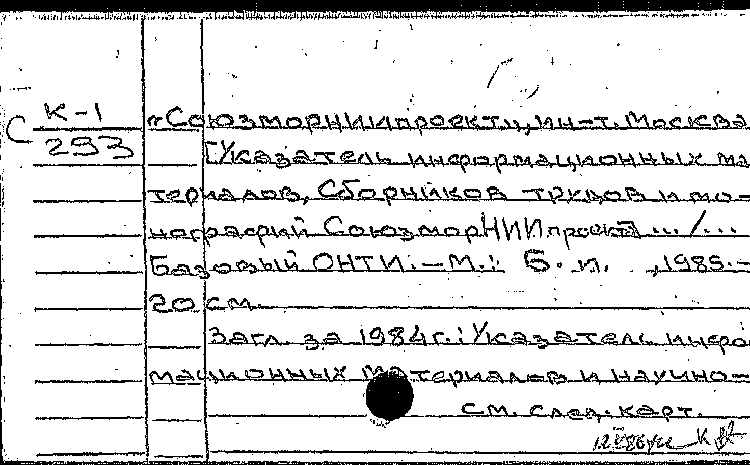 С К-1
293
"Союзморниипроект", ин-т. Москва
[Указатель информационных ма-
териалов, Сборников трудов и мо-
нографий СоюзморНИИпроект ... /...
Базовый ОНТИ. - М.: Б. и. , 1985. -
20 см.
Загл. за 1984 г.: Указатель инфор
мационных материалов и научно-
см. след. карт.